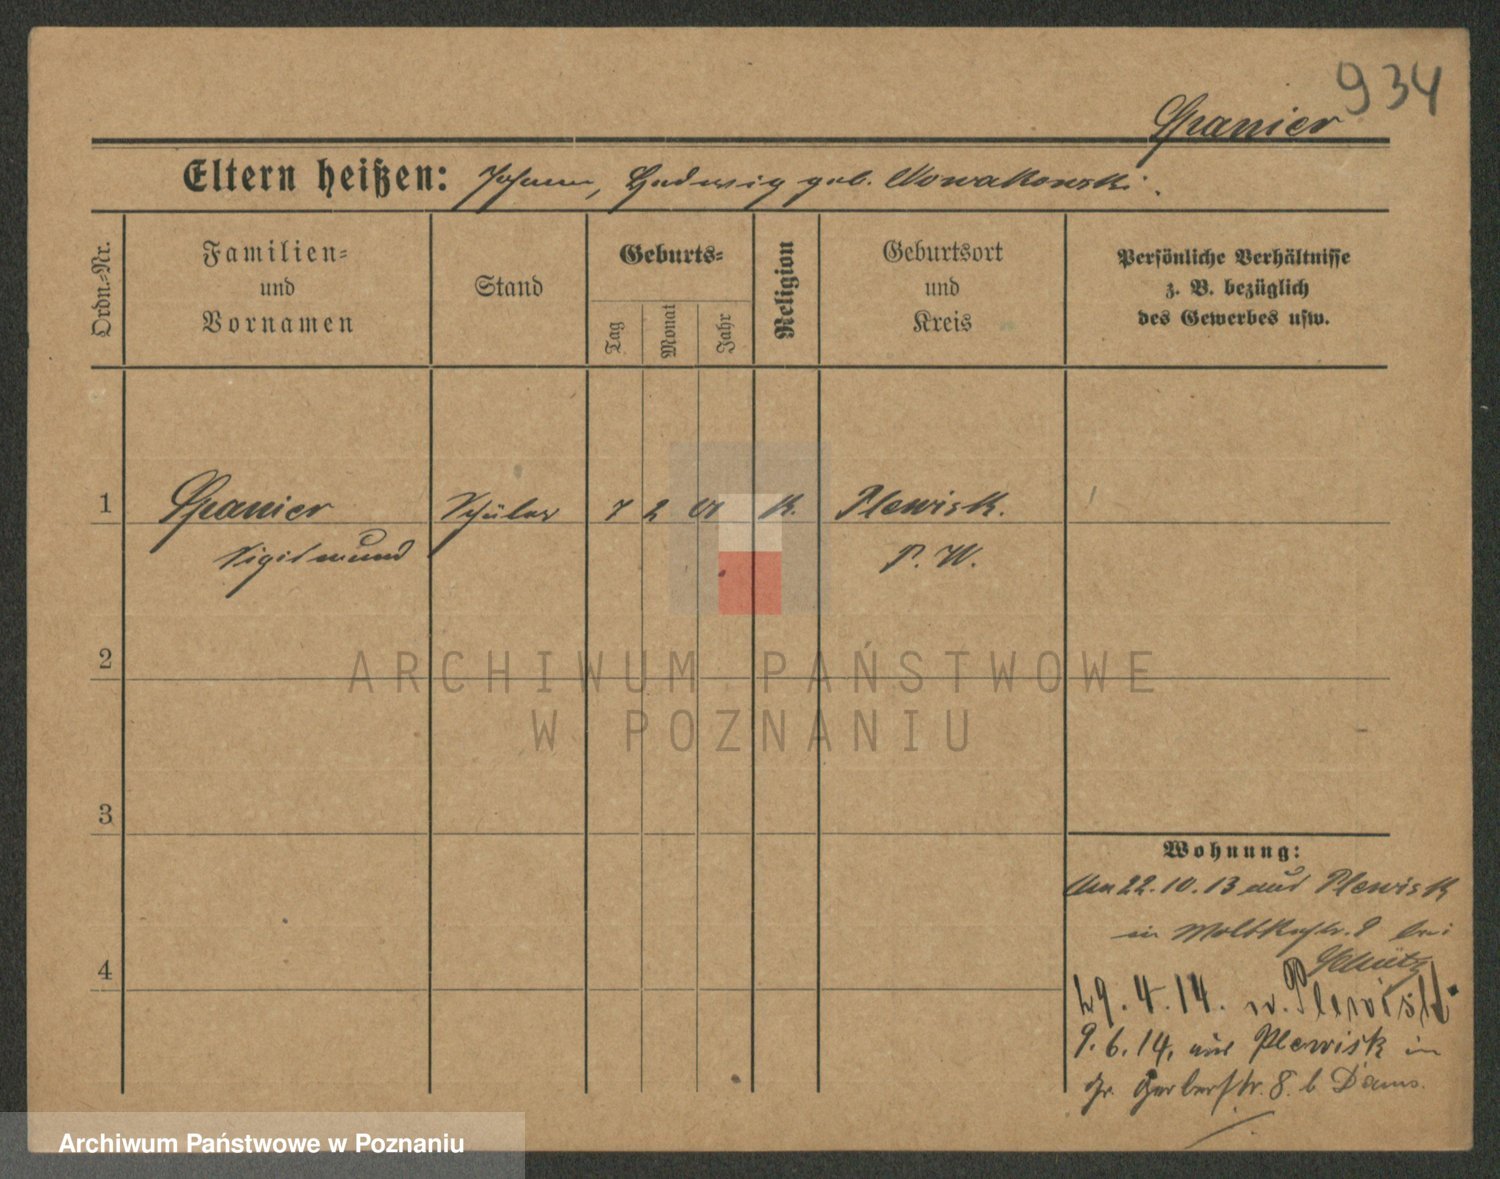 934
Spanier
Eltern heißen: Johann, Hedwig geb. Nowakowski.
Ordn.-Nr.
Familien-
und
Vornamen
Stand
Geburts-
Tag
Monat
Jahr
Religion
Geburtsort
und
Kreis
Persönliche Verhältnisse
z. B. bezüglich
des Gewerbes usw.
1 Spanier Schüler 7 2 01 k. Plewisk.
Sigismund P. W.
2
3
4
Wohnung:
Am 22.10.13 aus Plewisk
in Moltkestr. 9 bei
Schütz
29.4.14. n. Plewisk
9.6.14, aus Plewisk in
Gr. Gerberstr. 8. b.
ARCHIWUM PAŃSTWOWE
W POZNANIU
Archiwum Państwowe w Poznaniu